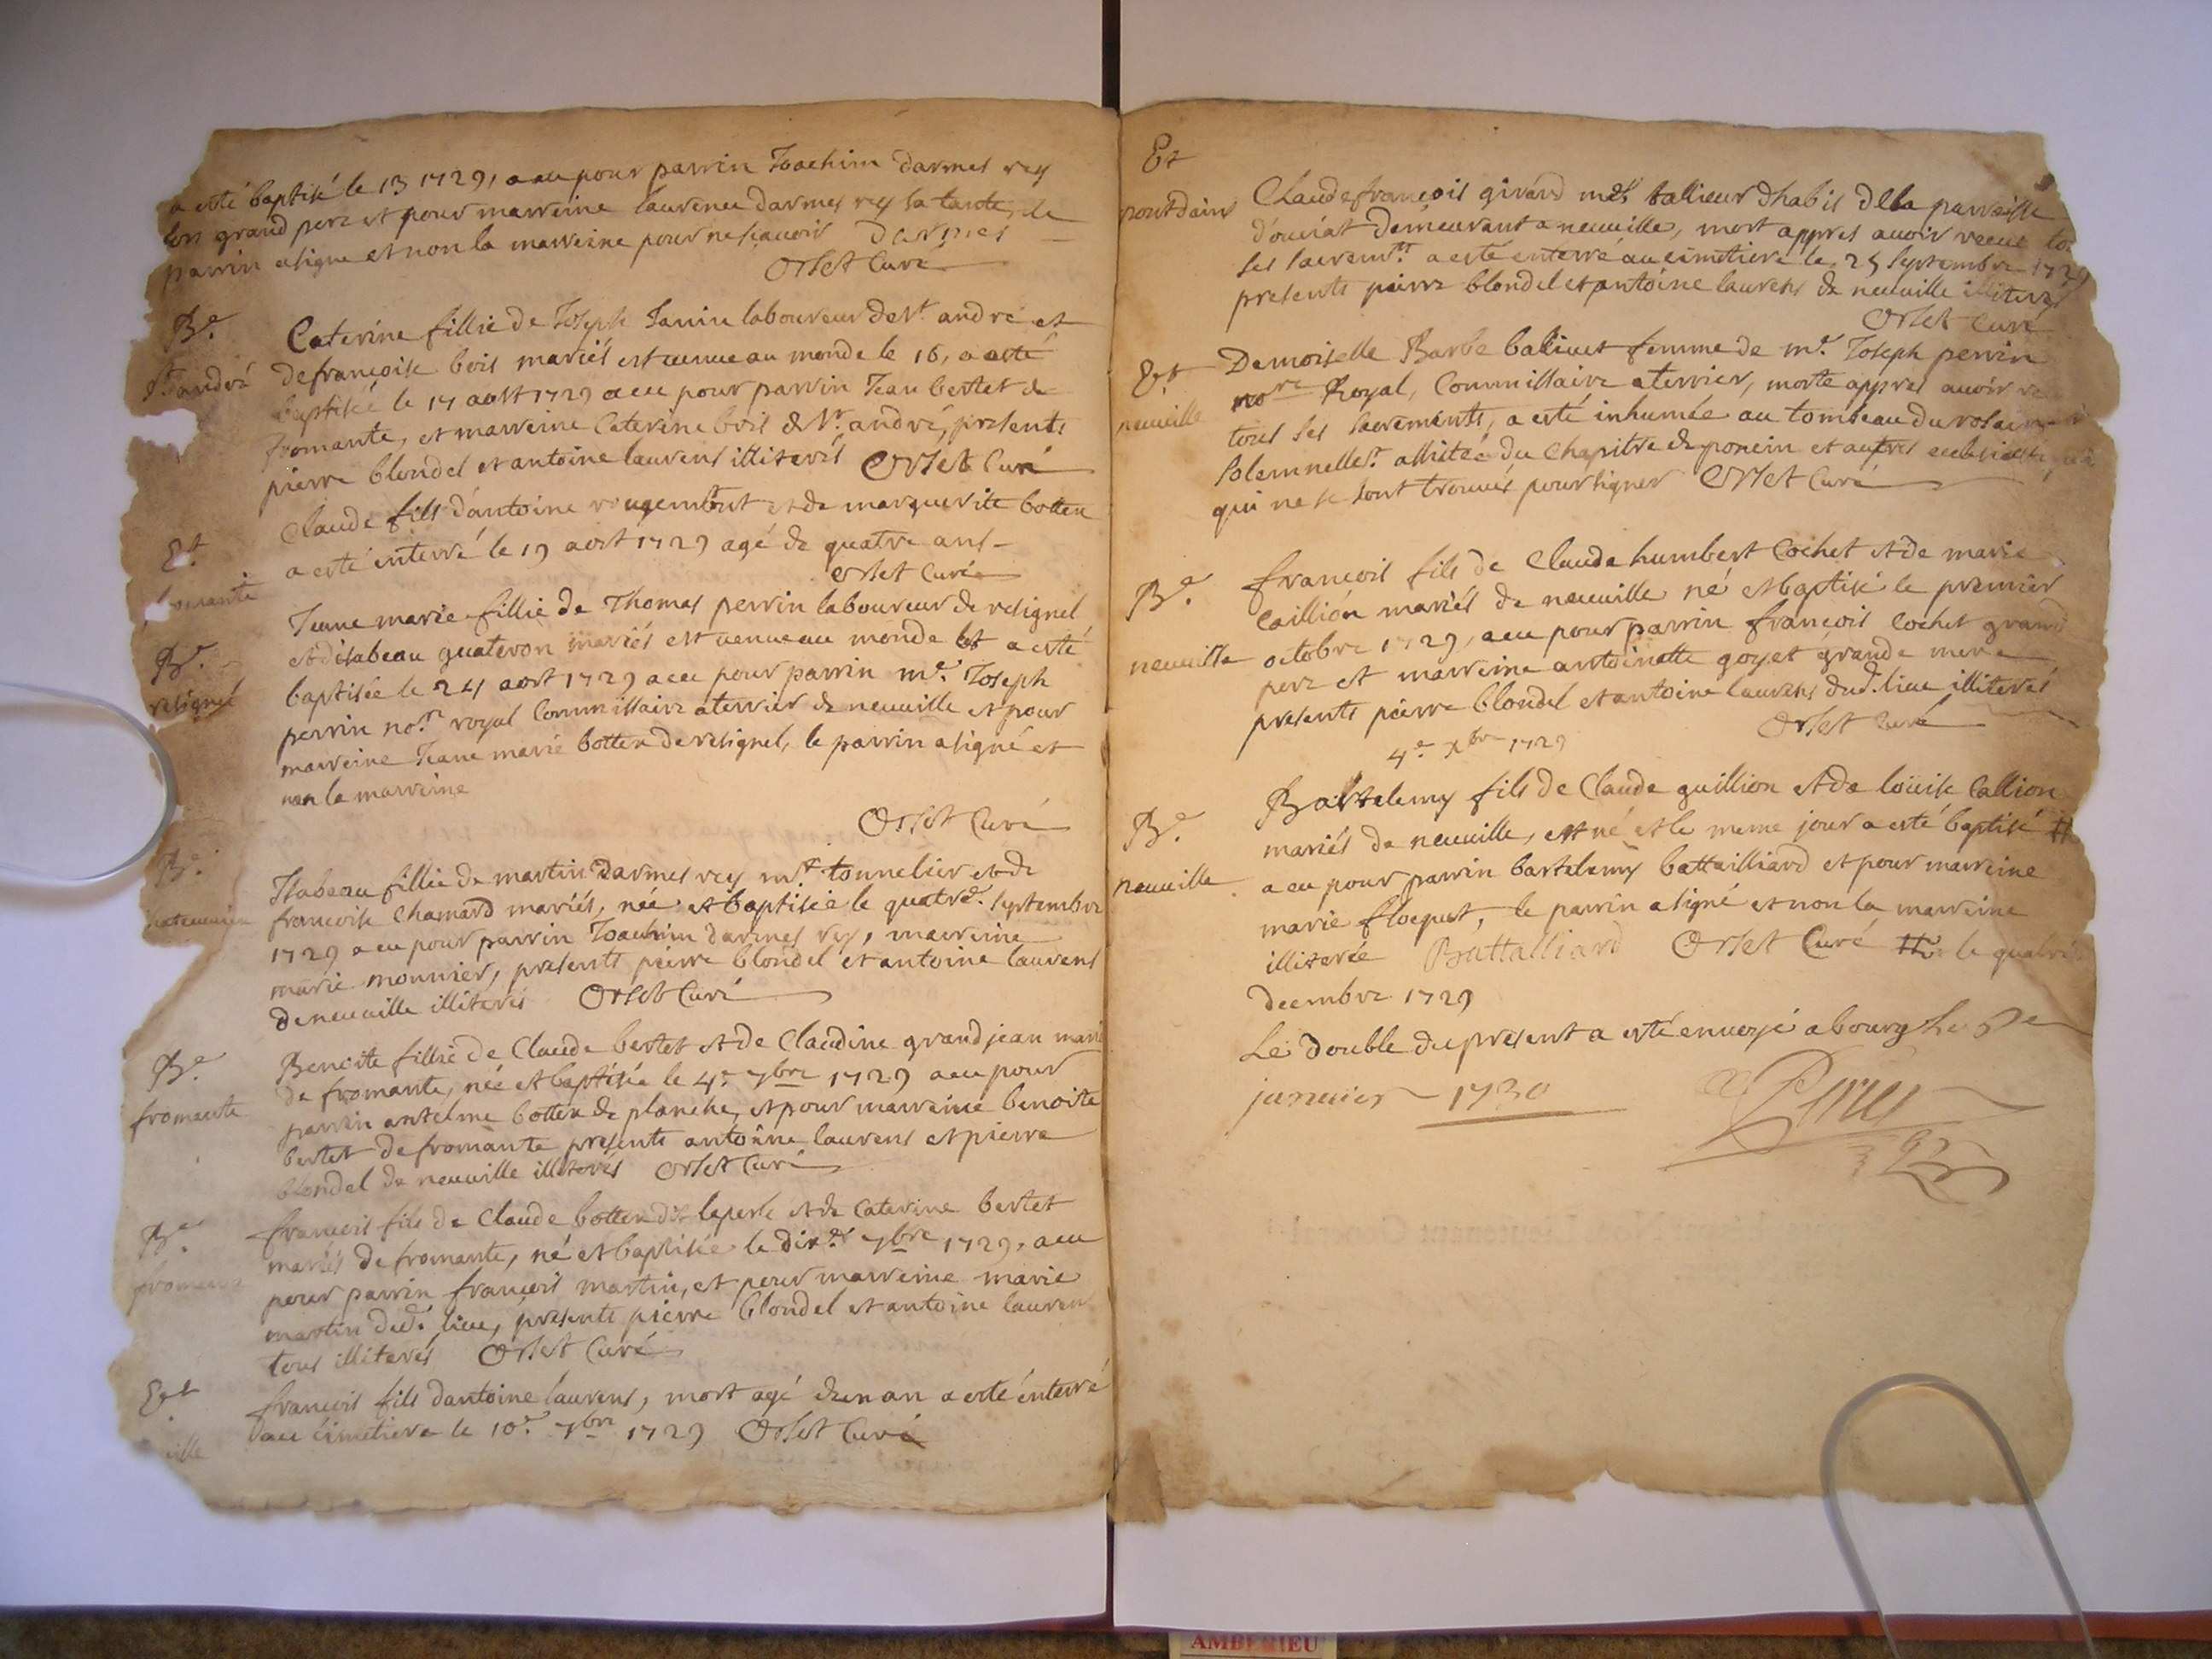 a esté baptisé le 13 1729, a eu pour parrin Joachim Darmes rey
son grand pere et pour marreine laurence darmes rey sa tante, le
parrin a signé et non la marreine pour ne scavoir Darmes
Orset Curé
Be.
St andré
Caterine fillie de Joseph Janin laboureur de St. andré et
de francoise bois mariés est venue au monde le 16, a esté
baptisée le 17 aost 1729 a eu pour parrin Jean bertet de
fromante, et marreine Caterine bois de St. andré, presents
pierre blondel et antoine laurens illiterés Orset Curé
Et
Claude fils d'antoine rougemont et de marguerite botten
a esté enterré le 19 aost 1729 agé de quatre ans
Orset Curé
Be.
resignel
Jeane marie fillie de Thomas perrin laboureur de resignel
et disabeau quateron mariés est venue au monde et a esté
baptisée le 24 aost 1729 a eu pour parrin me. Joseph
perrin nore. royal Commissaire a terrier de neuville et pour
marreine Jeane marie botten de resignel, le parrin a signé et
non la marreine
Orset Curé
Be.
Isabeau fillie de martin Darmes rey me. tonnelier et de
francoise Chamard mariés, née et baptisée le quatre septembre
1729 a eu pour parrin Joachim darmes rey, marreine
marie monnier, presents pierre blondel et antoine laurens
de neuville illiterés Orset Curé
Be.
fromante
Benoite fillie de Claude bertet et de Claudine grandjean mariés
de fromante, née et baptisée le 4e 7bre 1729 a eu pour
parrin antelme botten de planche, et pour marreine benoite
bertet de fromante presents antoine laurens et pierre
blondel de neuville illiterés Orset Curé
Be.
fromante
francois fils de Claude botten dit leperle et de Caterine bertet
mariés de fromante, né et baptisée le dix 7bre 1729, a eu
pour parrin francois martin, et pour marreine marie
martin dud. lieu, presents pierre blondel et antoine laurens
tous illiterés Orset Curé
Et
ville
francois fils dantoine laurens, mort agé dun an a esté enterré
au cimetiere le 10e. 7bre 1729 Orset Curé
Et
pontdains
Claude francois girard me tallieur dhabis de la parroisse
d'ouriat demeurant a neuville, mort appres avoir receu to
ses sacremts. a esté enterré au cimetiere le 25 septembre 1729
presents pierre blondel et antoine laurens de neuville illiterés
Orset Curé
Et
neuville
Demoiselle Barbe balivet femme de me. Joseph perrin
nore Royal, Commissaire a terrier, morte appres avoir re
tous ses sacrements, a esté inhumée au tombeau du rosaire
solemnellet. assitée du Chapitre de poncin et autres
qui ne se sont trouvés pour signer Orset Curé
Be.
neuville
francois fils de Claude humbert Cochet et de marie
Caillion mariés de neuville né et baptisé le premier
octobre 1729, a eu pour parrin francois Cochet grand
pere et marreine antoinette goyet grande mere
presents pierre blondel et antoine laurens dud. lieu illiterés
Orset Curé
4e xbre 1729
Be.
neuville
Bartelemy fils de Claude guillion et de loüise Callion
mariés de neuville, est né et le meme jour a esté baptisé #
a eu pour parrin bartelemy battailliard et pour marreine
marie floquet, le parrin a signé et non la marreine
illiterée Battalliard Orset Curé # le quatre
decembre 1729
Le double du present a esté envoyé a bourg le
janvier 1730
AMBERIEU